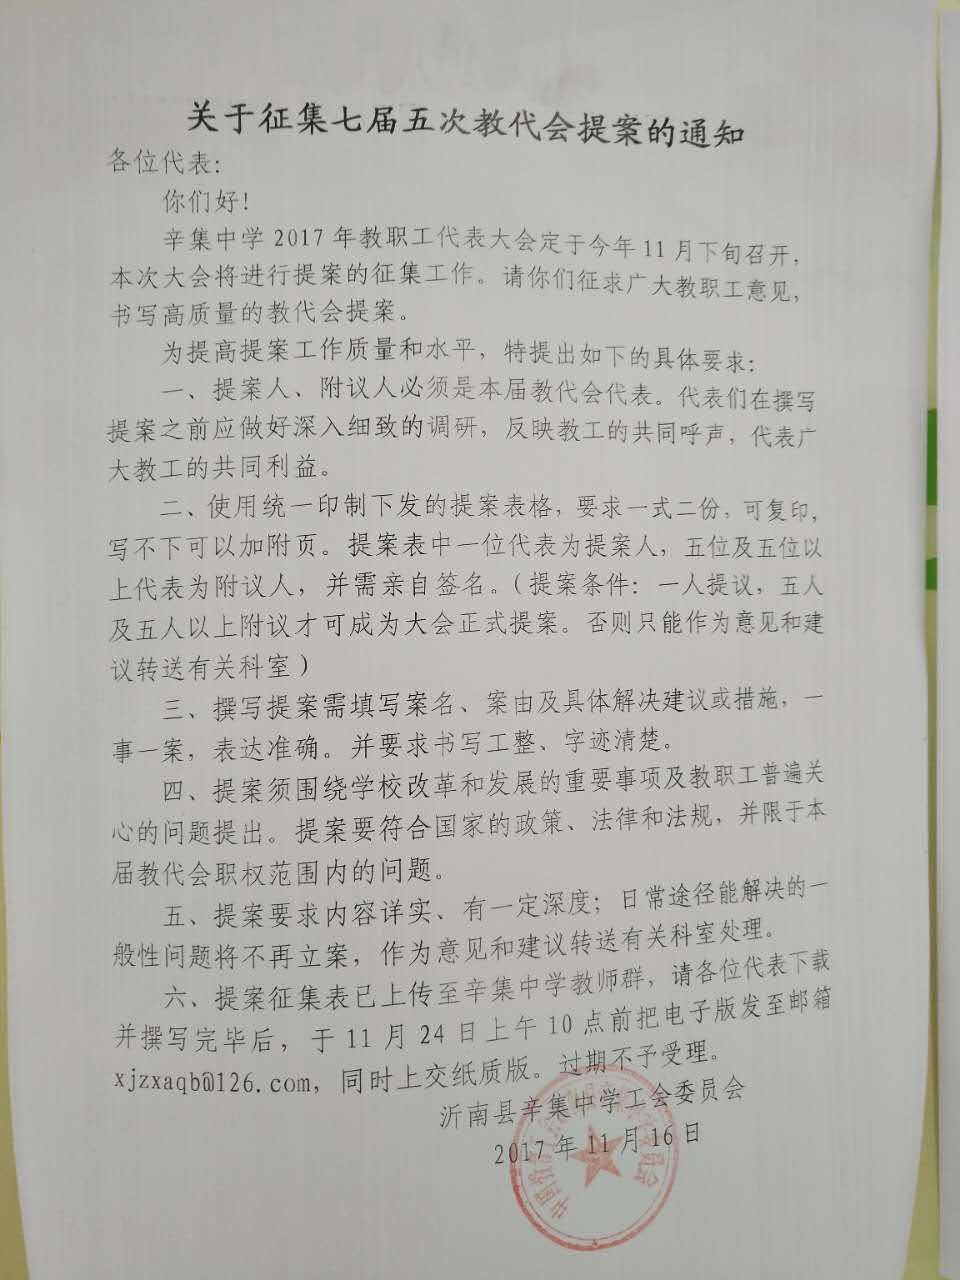 关于征集七届五次教代会提案的通知
各位代表：
你们好！
辛集中学2017年教职工代表大会定于今年11月下旬召开，
本次大会将进行提案的征集工作。请你们征求广大教职工意见，
书写高质量的教代会提案。
为提高提案工作质量和水平，特提出如下的具体要求：
一、提案人、附议人必须是本届教代会代表。代表们在撰写
提案之前应做好深入细致的调研，反映教工的共同呼声，代表广
大教工的共同利益。
二、使用统一印制下发的提案表格，要求一式二份，可复印，
写不下可以加附页。提案表中一位代表为提案人，五位及五位以
上代表为附议人，并需亲自签名。（提案条件：一人提议，五人
及五人以上附议才可成为大会正式提案。否则只能作为意见和建
议转送有关科室）
三、撰写提案需填写案名、案由及具体解决建议或措施，一
事一案，表达准确。并要求书写工整、字迹清楚。
四、提案须围绕学校改革和发展的重要事项及教职工普遍关
心的问题提出。提案要符合国家的政策、法律和法规，并限于本
届教代会职权范围内的问题。
五、提案要求内容详实、有一定深度；日常途径能解决的一
般性问题将不再立案，作为意见和建议转送有关科室处理。
六、提案征集表已上传至辛集中学教师群，请各位代表下载
并撰写完毕后，于11月24日上午10点前把电子版发至邮箱
xjzxaqb@126.com，同时上交纸质版。过期不予受理。
沂南县辛集中学工会委员会
2017年11月16日